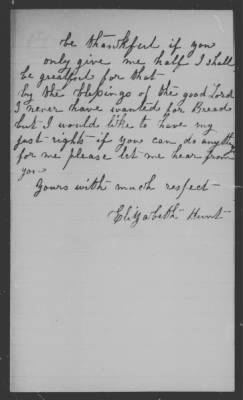 be thankful if you
only give me half I shall
be greatful for that
by the blessings of the good Lord
I never have wanted for Bread
but I would like to have my
just rights if you can do anything
for me please let me hear from
you
Yours with much respect
Elizabeth Hunt